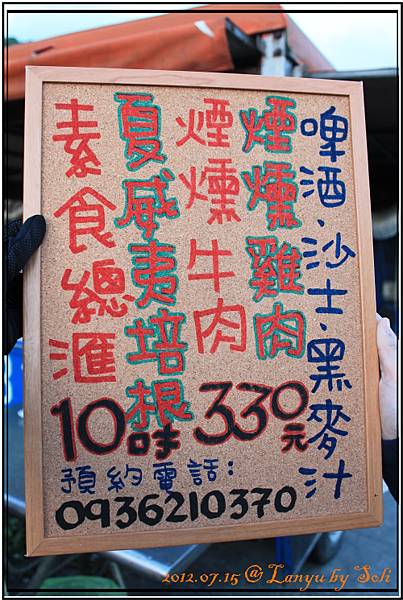 啤酒、沙士、黑麥汁
煙燻雞肉
煙燻牛肉
夏威夷培根
素食總滙
10味 330元
預約電話:
0936210370
2012.07.15 @ Lanyu by Soli